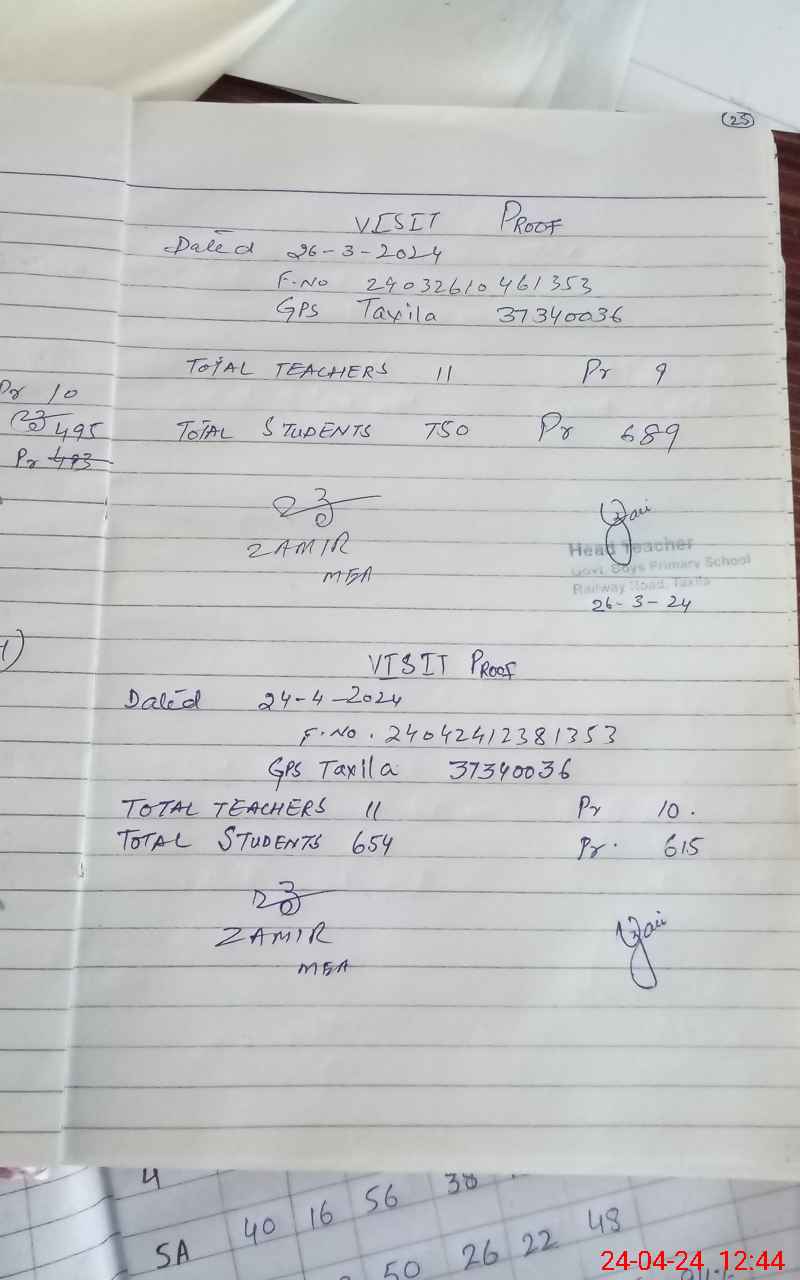 (25)
VISIT PROOF
Dated 26-3-2024
F.No 24032610461353
GPS Taxila 37340036
TOTAL TEACHERS 11 Pr 9
TOTAL STUDENTS 750 Pr 689
ZAMIR
MEA
Head Teacher
Govt. Boys Primary School
Railway Road, Taxila
26-3-24
Pr 10
495
Pr 483
VISIT PROOF
Dated 24-4-2024
F.No. 24042412381353
GPS Taxila 37340036
TOTAL TEACHERS 11 Pr 10.
TOTAL STUDENTS 654 Pr. 615
ZAMIR
MEA
4 38
5A 40 16 56
50 26 22 48
24-04-24 12:44